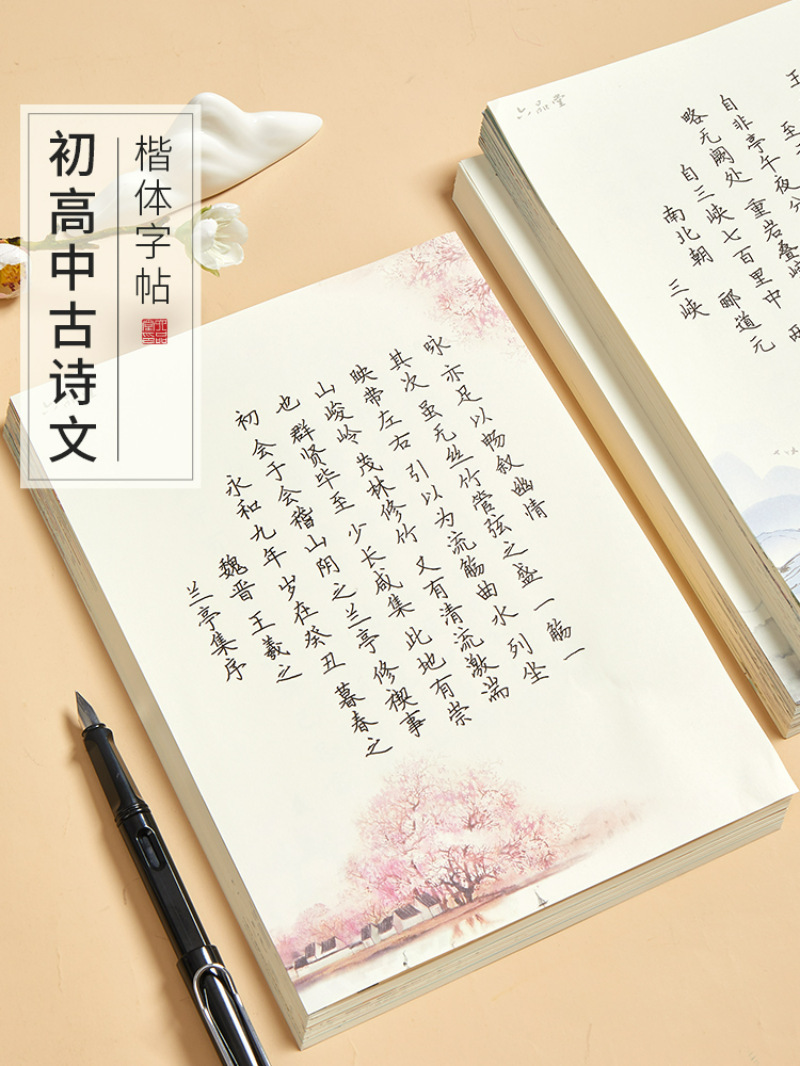 初高中古诗文
楷体字帖
六品堂
兰亭集序
魏晋 王羲之
永和九年 岁在癸丑 暮春之
初 会于会稽山阴之兰亭 修禊事
也 群贤毕至 少长咸集 此地有崇
山峻岭 茂林修竹 又有清流激湍
映带左右 引以为流觞曲水 列坐
其次 虽无丝竹管弦之盛 一觞一
咏 亦足以畅叙幽情
六品堂
三峡
南北朝 郦道元
自三峡七百里中 两
略无阙处 重岩叠
自非亭午夜分
至
王